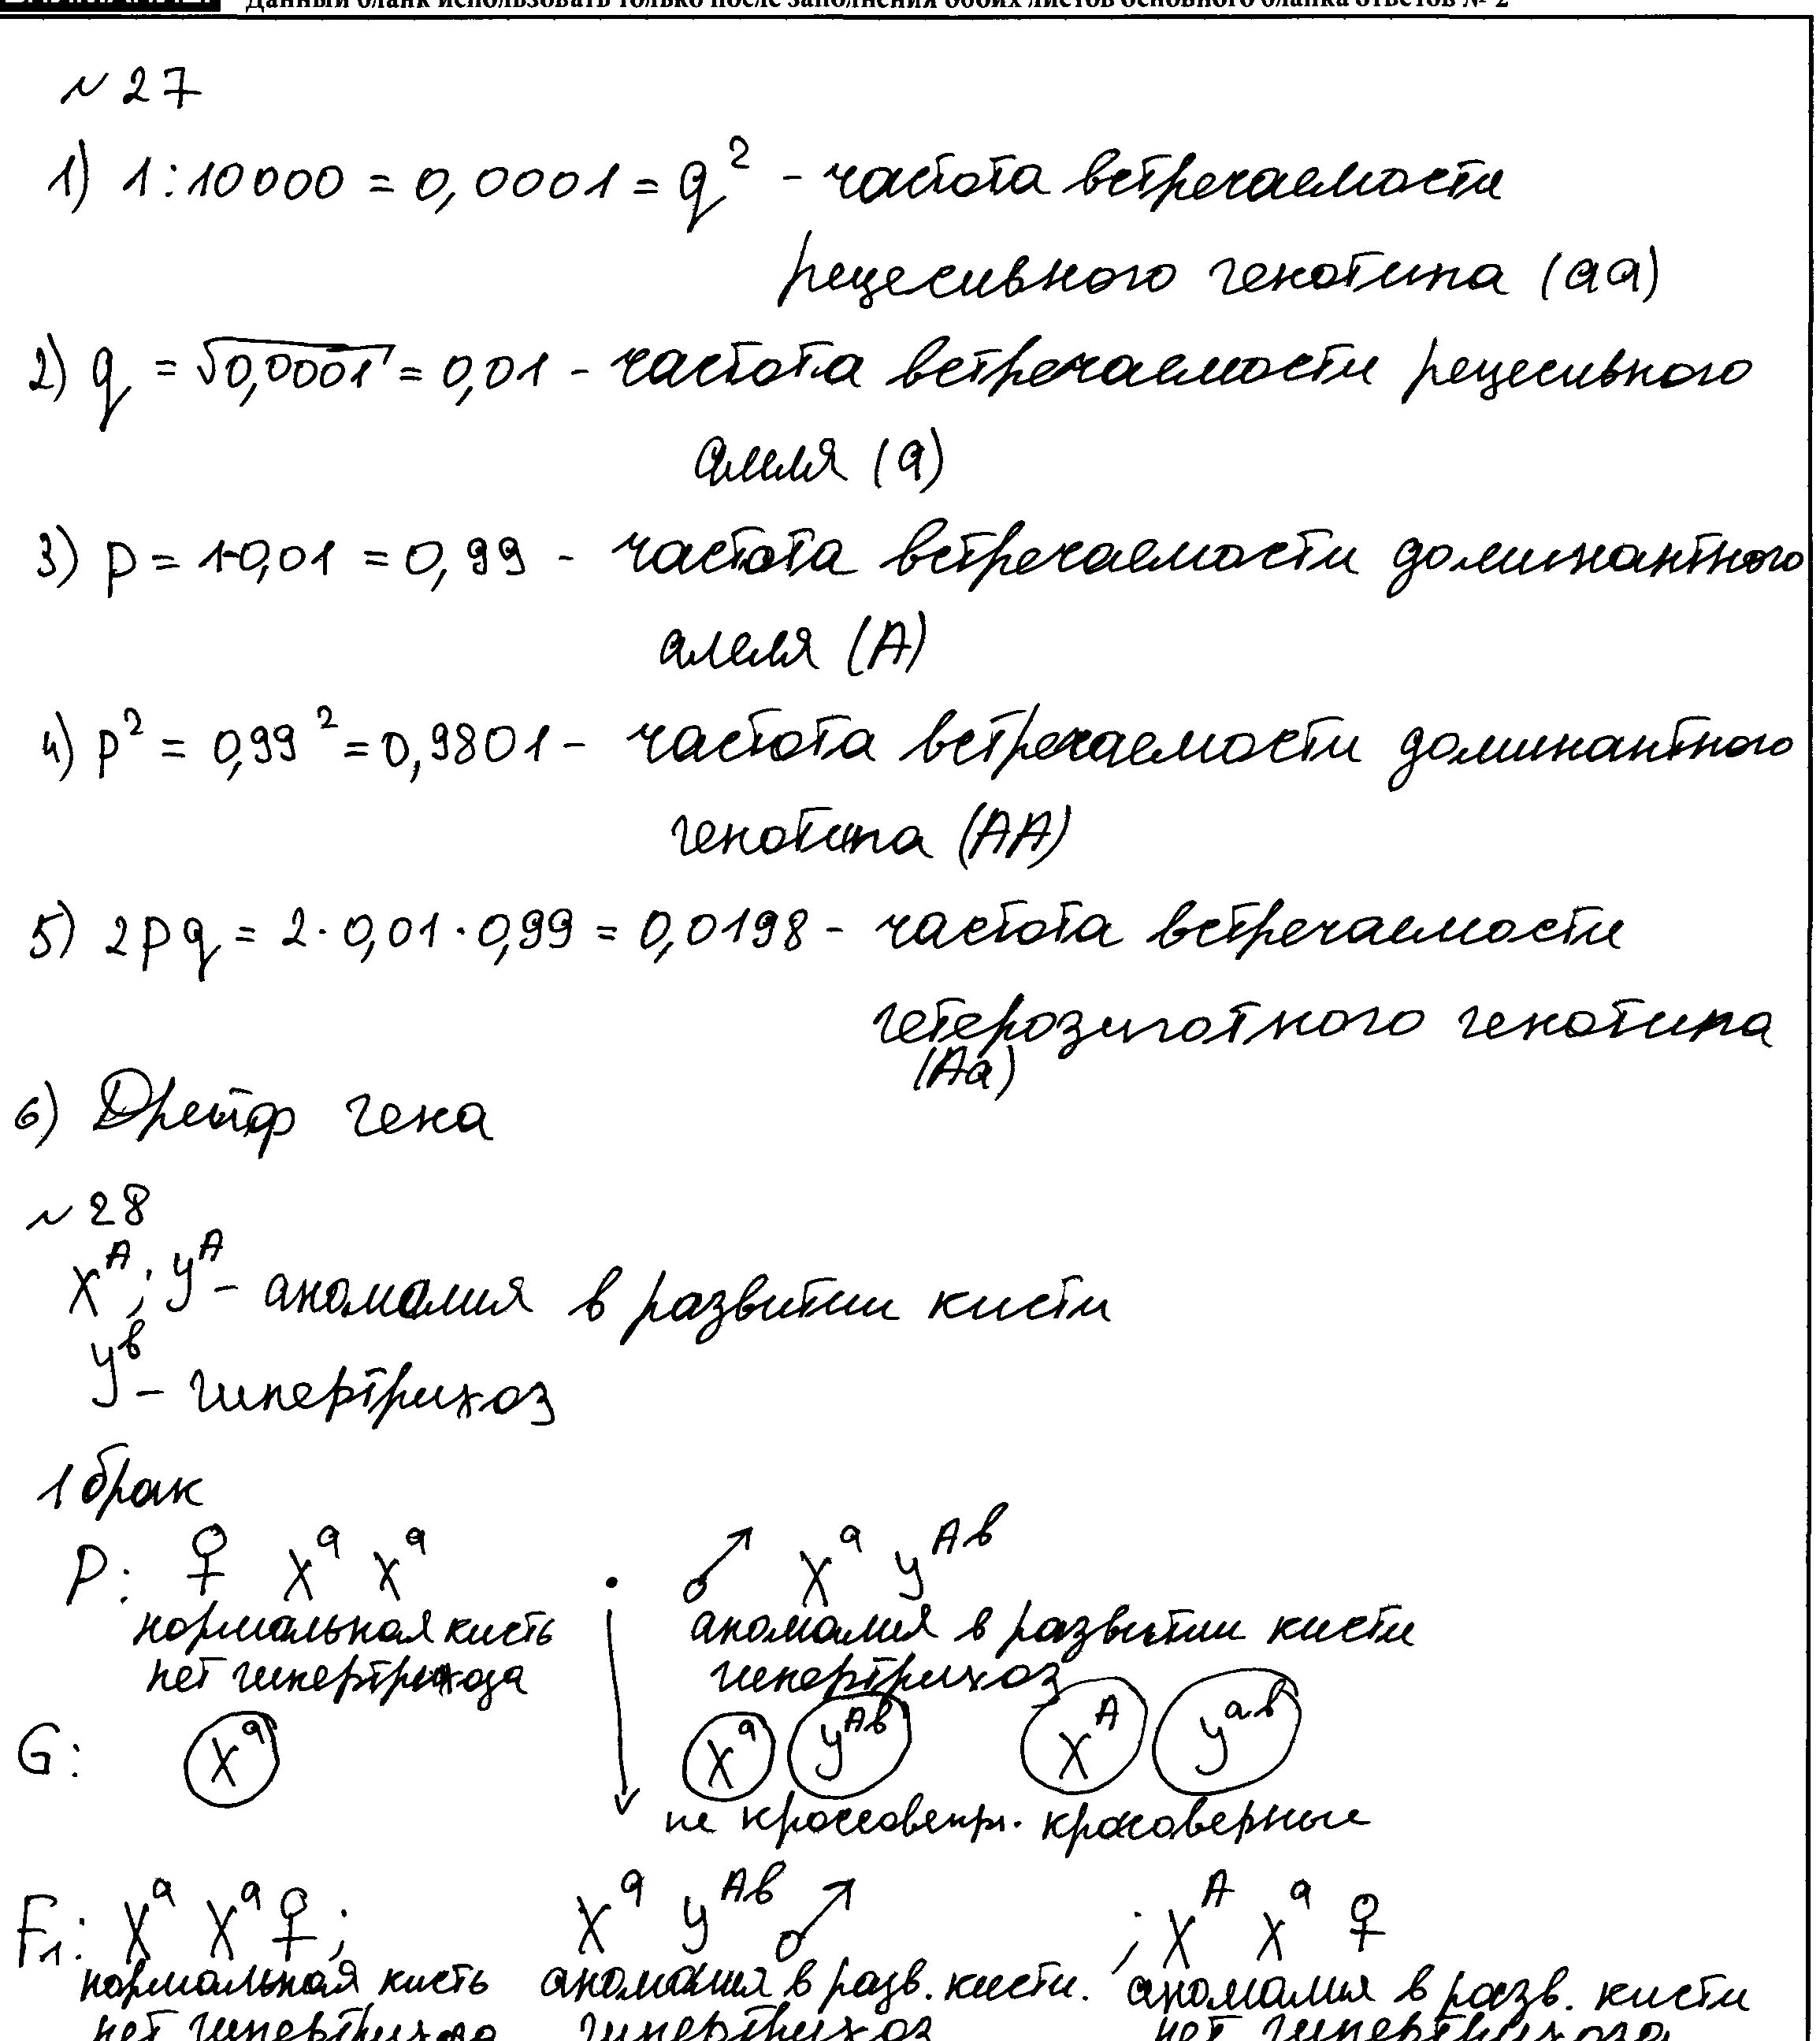 Данный бланк использовать только после заполнения обоих листов основного бланка ответов № 2
№ 27
1) 1:10000 = 0,0001 = q² - частота встречаемости
рецесивного генотипа (aa)
2) q = √0,0001 = 0,01 - частота встречаемости рецесивного
алеля (a)
3) p = 1-0,01 = 0,99 - частота встречаемости доминантного
алеля (A)
4) p² = 0,99² = 0,9801 - частота встречаемости доминантного
генотипа (AA)
5) 2pq = 2·0,01·0,99 = 0,0198 - частота встречаемости
гетерозиготного генотипа
(Aa)
6) Дрейф гена
№ 28
Xᴬ; yᴬ - аномалия в развитии кисти
yᵇ - гипертрихоз
1 брак
P: ♀ Xᵃ Xᵃ · ♂ Xᵃ yᴬᵇ
нормальная кисть аномалия в развитии кисти
нет гипертрихоза гипертрихоз
G: Xᵃ Xᵃ yᴬᵇ Xᴬ yᵃᵇ
не кроссоверн. кросоверные
F₁: Xᵃ Xᵃ ♀; Xᵃ yᴬᵇ ♂ ; Xᴬ Xᵃ ♀
нормальная кисть аномалия в разв. кисти. аномалия в разв. кисти
нет гипертрихоза гипертрихоз нет гипертрихоза